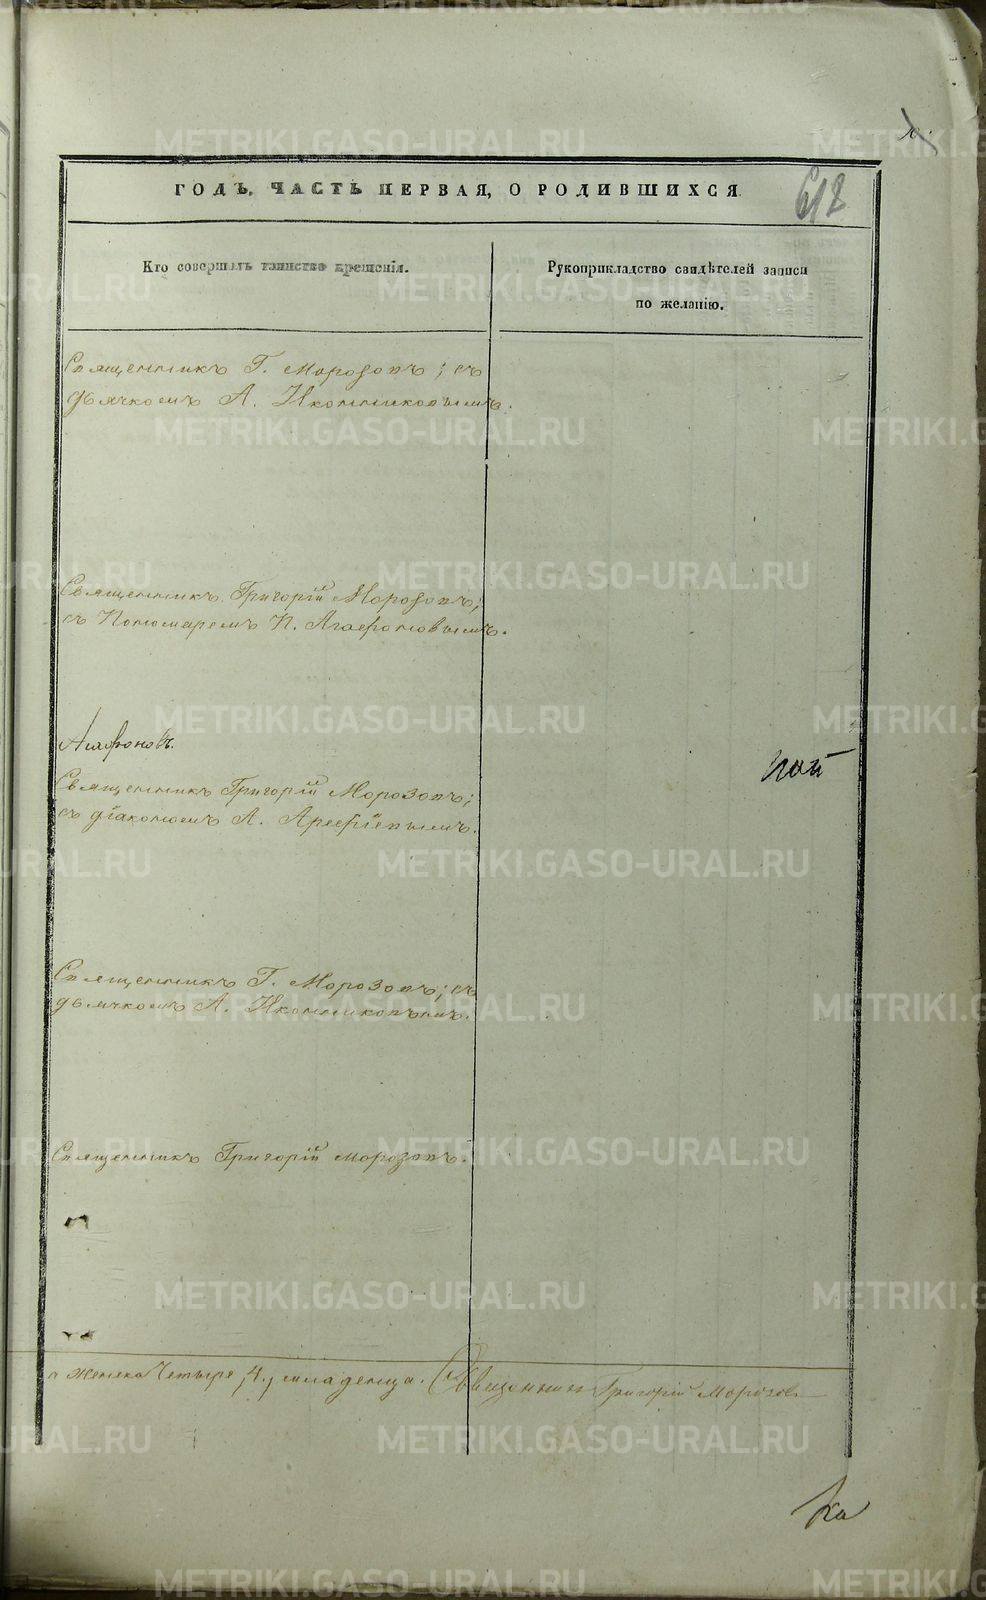 ГОДЪ, ЧАСТЬ ПЕРВАЯ, О РОДИВШИХСЯ
612
Кто совершалъ таинство крещенія.
Рукоприкладство свидѣтелей записи
по желанію.
Священникъ Г. Морозовъ; съ
дьячкомъ А. Иконниковымъ.
Священникъ Григорій Морозовъ;
съ Пономаремъ П. Агафоновымъ.
Агафоновъ.
ной
Священникъ Григорій Морозовъ;
съ діакономъ А. Арефіевымъ.
Священникъ Г. Морозовъ; съ
дьячкомъ А. Иконниковымъ.
Священникъ Григорій Морозовъ.
женска Четыре, 4, младенца. Священник Григорій Морозов
ка
METRIKI.GASO-URAL.RU